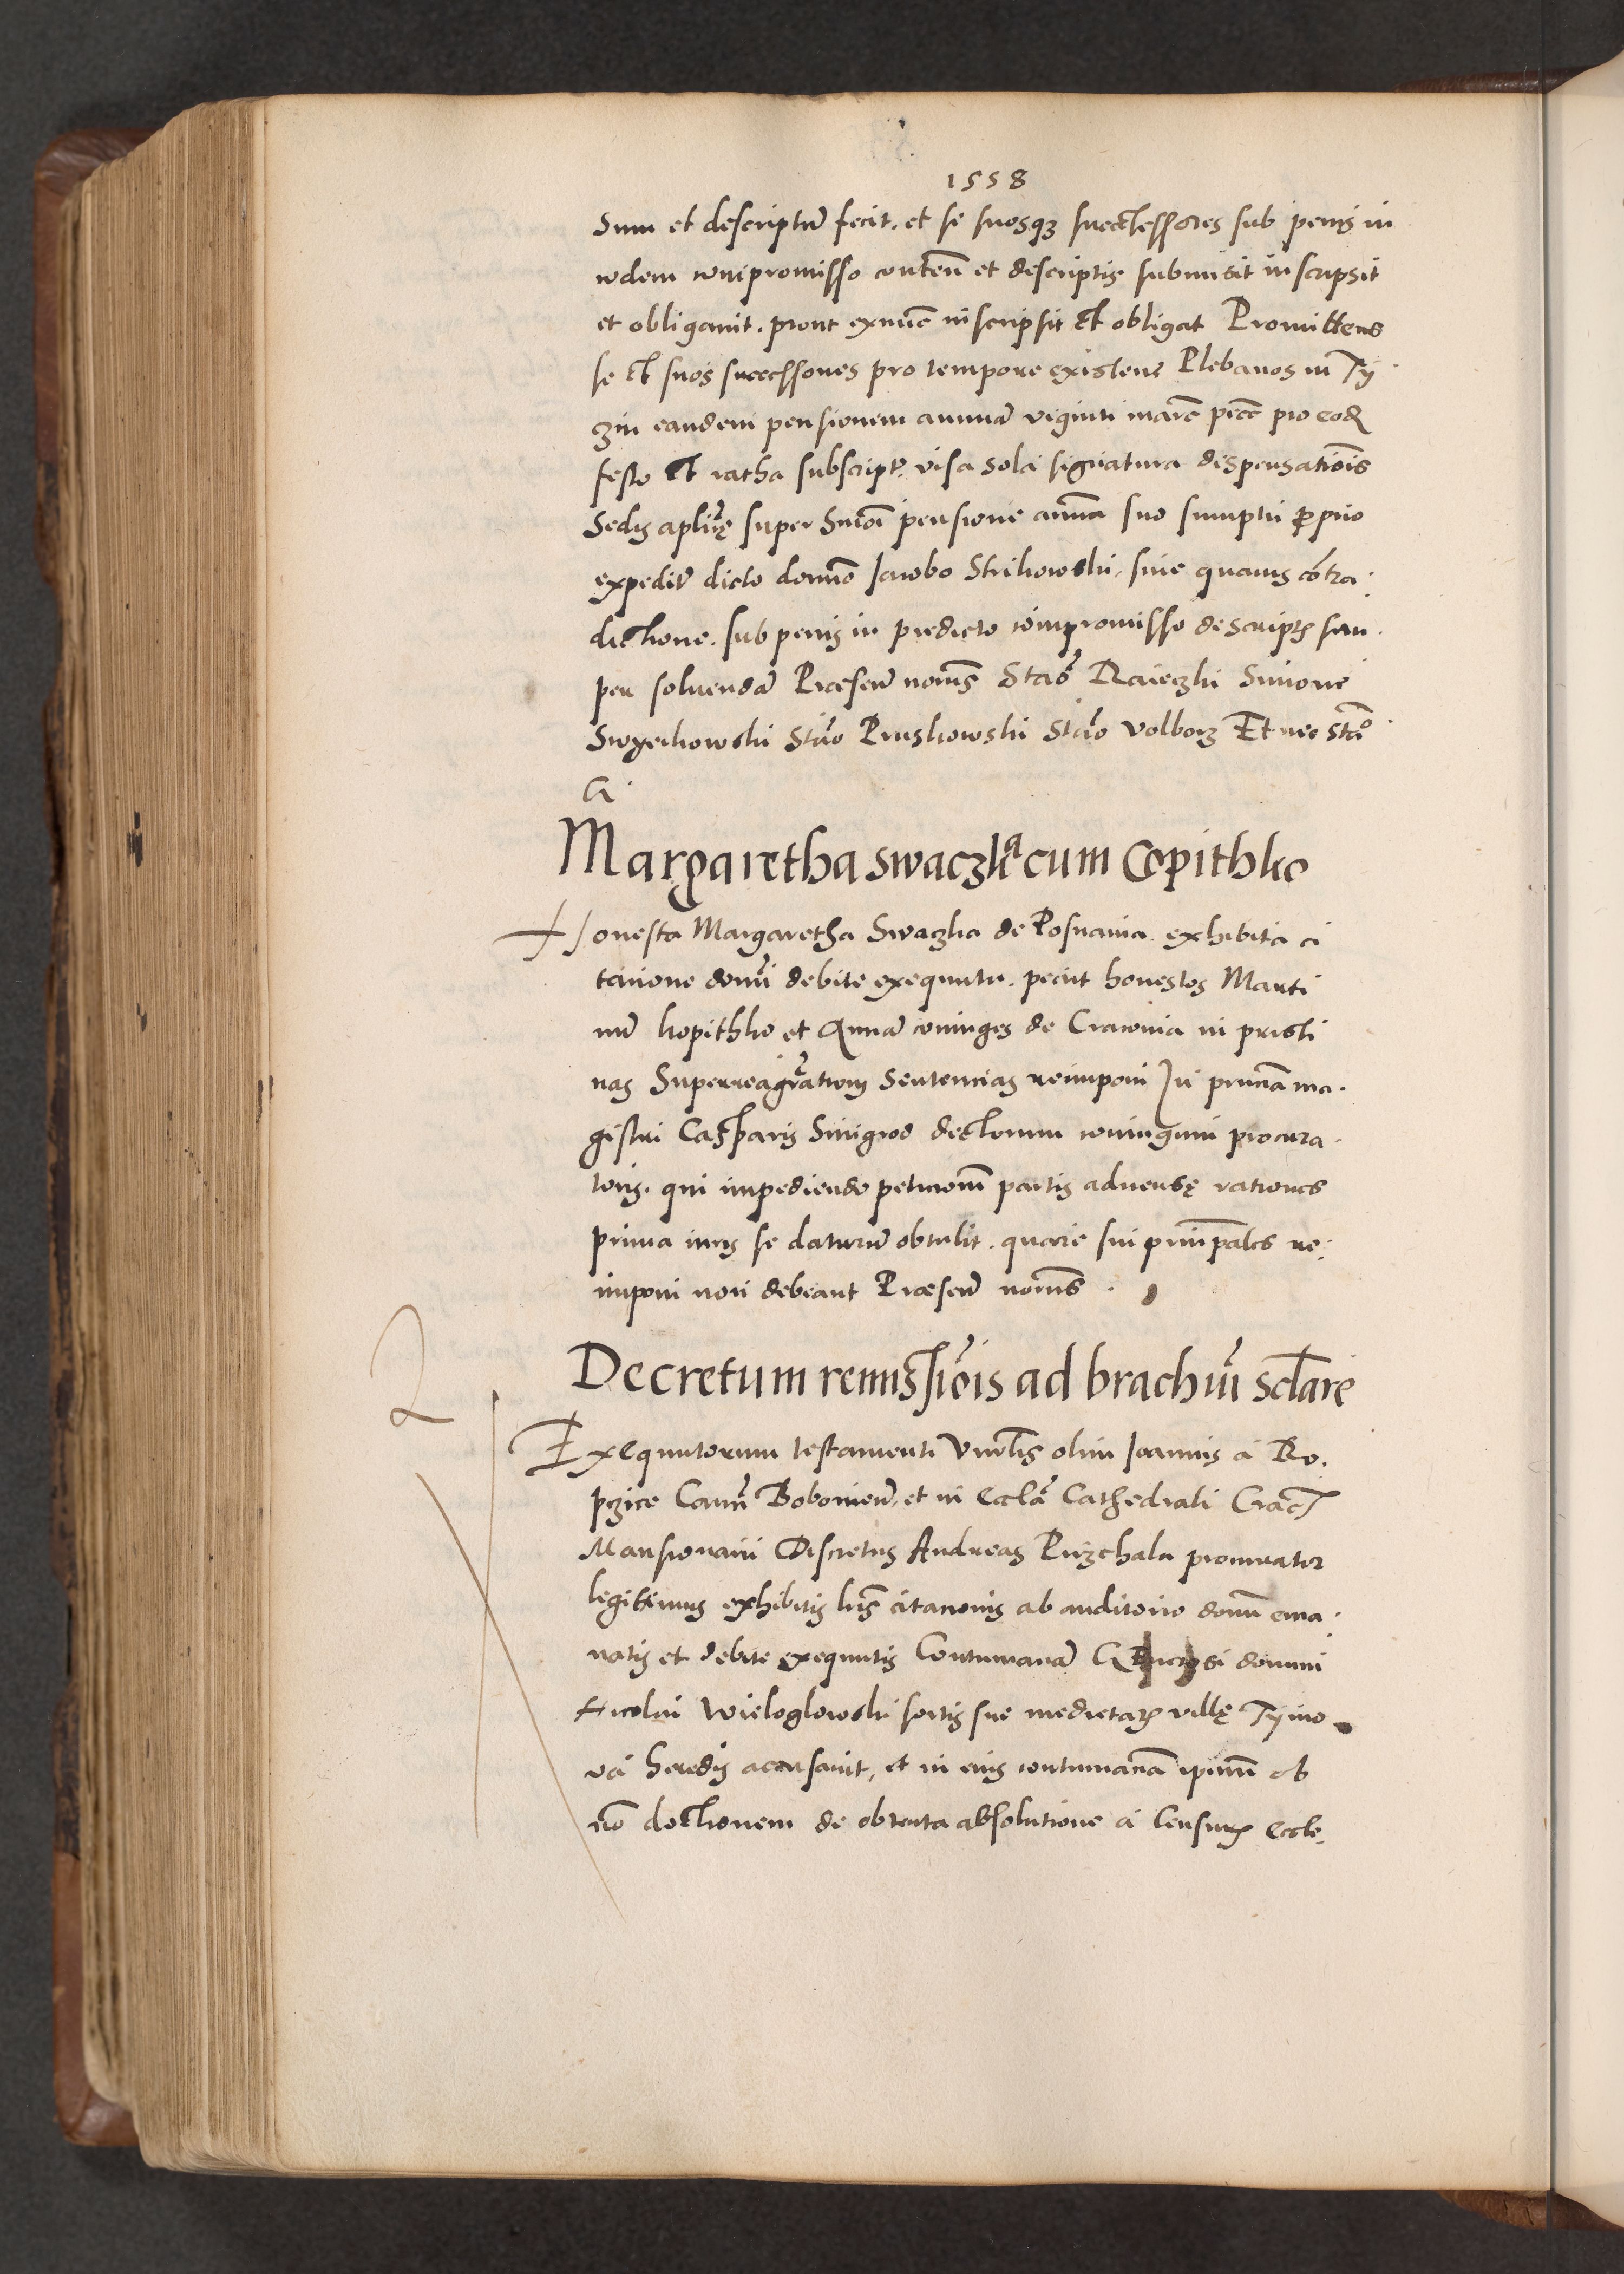 1558
Sum et descriptũ fecit. et se suosq3 succtessores sub penis in
eodem compromisso conteñ et descriptis submisit inscripsit
et obligavit. prout exnũc inscripsit et obligat Promittens
se et suos successores pro tempore existeñ Plebanos in Ty
zin eandem pensionem annuã viginti marc̃ pec̃ pro eod
festo et ratha subscript. visa sola signatura dispensatiõis
Sedis aplicę super hmõi pensione annua suo sumptu proprio
expedit dicto domino Jacobo Strikowski, sine quavis cõtra
dictione. sub penis in predicto compromisso descriptis sem
per solvendã Præseñ nonis Stão Raieczki Simone
Swyerkowski Stão Pruskowski Stão Volborz Et me Stão
G
Margaretha swaczka cum Copithko
Honesta Margaretha Swaczka de Posnania. exhibita ci
tatione domi debite exequuta. petiit honestos Marti
nũ kopithko et Annã coniuges de Cracovia in pristi
nas Superreagravationis Sententias reimponi In pñtia ma
gistri Casparis Smigrod dictorum coniugum procura
toris. qui impediendo petitionem partis adversę rationes
prima iuris se daturũ obtulit. quare sui principales re
imponi non debeant Præseñ nonis
Decretum remissiõis ad brachiũ sclare
Exequutorum testamenti Vnrlis olim Joannis a Ro
pczice Cañ Bobovieñ. et in Ecclã Cathedrali Crac
Mansionarii Discretus Andreas Przchala procurator
legittimus exhibitis lris citationis ab auditorio domi ema
natis et debite exequutis Contumaciã Generosi domini
Nicolai Wieloglowski sortis sue medietatis villę Tymo
va heredis accusavit, et in eius contumaciã ipsum ob
nõ doctionem de obtenta absolutione a Censuris Eccle